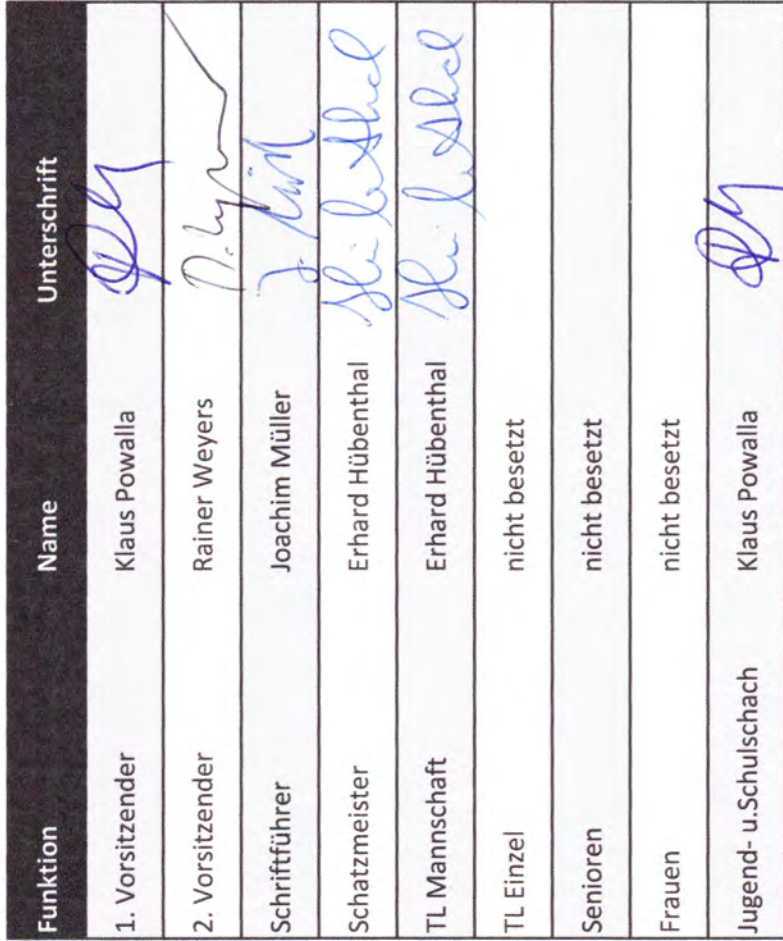 Funktion Name Unterschrift
1. Vorsitzender Klaus Powalla
2. Vorsitzender Rainer Weyers
Schriftführer Joachim Müller
Schatzmeister Erhard Hübenthal
TL Mannschaft Erhard Hübenthal
TL Einzel nicht besetzt
Senioren nicht besetzt
Frauen nicht besetzt
Jugend- u.Schulschach Klaus Powalla